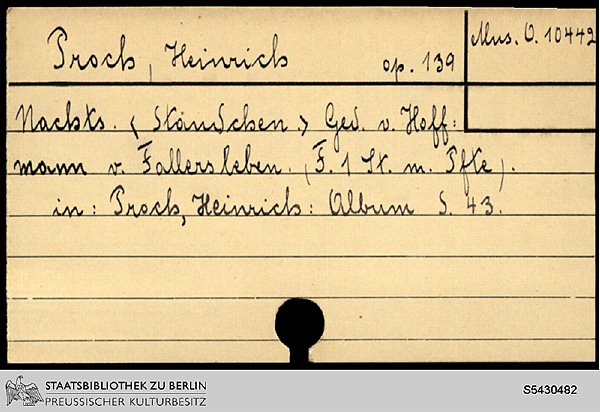 Proch, Heinrich op. 139
Mus. O. 10442
Nachts. < Ständchen. > Ged. v. Hoff=
mann v. Fallersleben. (F. 1 St. m. Pfte).
in: Proch, Heinrich: Album S. 43.
STAATSBIBLIOTHEK ZU BERLIN
PREUSSISCHER KULTURBESITZ
S5430482